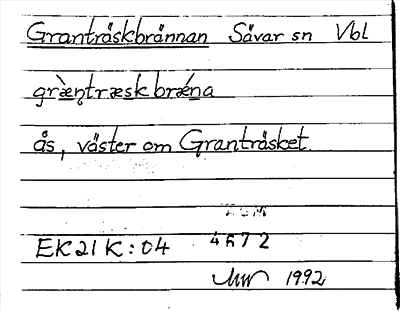 Granträskbrännan Sävar sn Vbl
græ̀ntræsk brǽna
ås, väster om Granträsket.
EK 21 K : 04 4672
1992